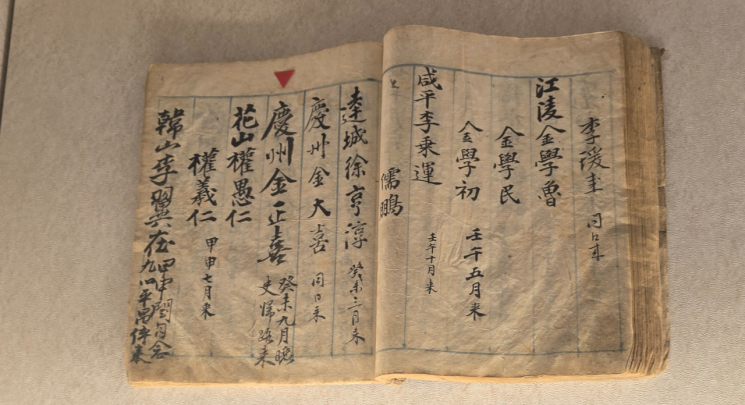 李緩圭 同日来
江陵金學魯
金學民
金學初 壬午五月来
咸平李乗運 壬午十月来
儒鵬
達城徐亨淳 癸未三月来
慶州金大喜 同日来
慶州金正喜 癸未九月晦
史歸路来
花山權愚仁
權義仁 甲申七月来
韓山李翼在 甲申閏旬念